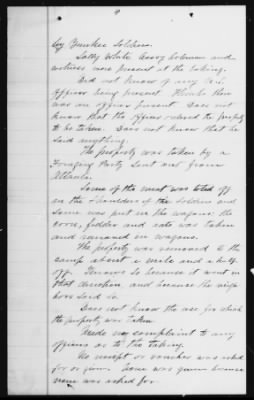 9
by Yankee Soldiers.
Sally White Henry Coleman and
witness were present at the taking.
Did not know of any U.S.
Officer being present. Thinks there
was an officer present. Does not
know that the officers ordered the property
to be taken. Does not know that he
said anything.
The property was taken by a
Foraging Party sent out from
Atlanta.
Some of the meat was toted off
on the shoulders of the soldiers and
some was put in the wagons. the
corn, fodder and oats was taken
and removed in wagons.
The property was removed to the
camp about a mile and a half
off. Knows so because it went in
that direction and because the neigh
bors said so.
Does not know the use for which
the property was taken.
Made no complaint to any
officers as to the taking.
No receipt or voucher was asked
for or given. None was given because
none was asked for.